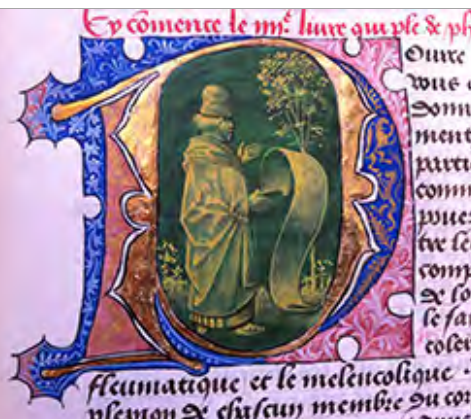 Cy cōmence le iiiie liure qui ple de ph
Oure
vous
domi
ment
parti
comm
pues
tre le
comp
de lo
le sa
coler
fleumatique et le melencolique
plexion de chascun membre du cor